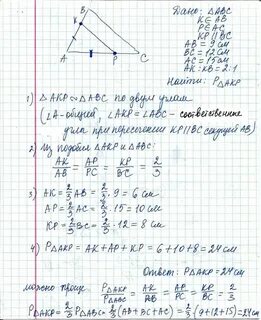 B
K
A
P
C
Дано: △ABC
K∈AB
P∈AC
KP∥BC
AB = 9 см
BC = 12 см
AC = 15 см
AK:KB = 2:1
Найти: P△AKP
1) △AKP ∾ △ABC по двум углам
(∠A - общий, ∠AKP = ∠ABC - соответственные
углы при пересечении KP∥BC секущей AB)
2) Из подобия △AKP и △ABC:
AK/AB = AP/PC = KP/BC = 2/3
3) AK = 2/3 AB = 2/3 · 9 = 6 см
AP = 2/3 AC = 2/3 · 15 = 10 см
KP = 2/3 BC = 2/3 · 12 = 8 см
4) P△AKP = AK + AP + KP = 6+10+8 = 24 см
Ответ: P△AKP = 24 см
можно проще P△AKP/P△ABC = AK/AB = AP/PC = KP/BC = 2/3
P△AKP = 2/3 P△ABC = 2/3 (AB+BC+AC) = 2/3 (9+12+15) = 24 см